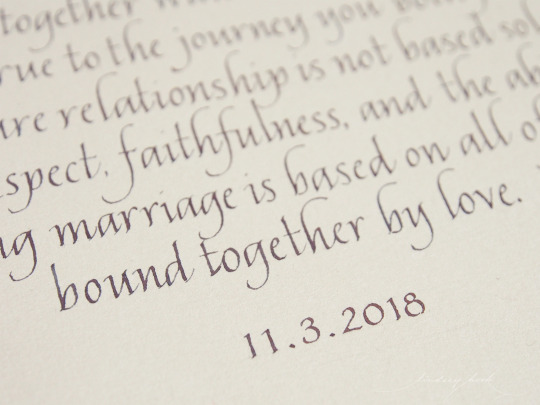 together
rue to the journey you
are relationship is not based sol
spect, faithfulness, and the ab
ng marriage is based on all of
bound together by love.
11.3.2018